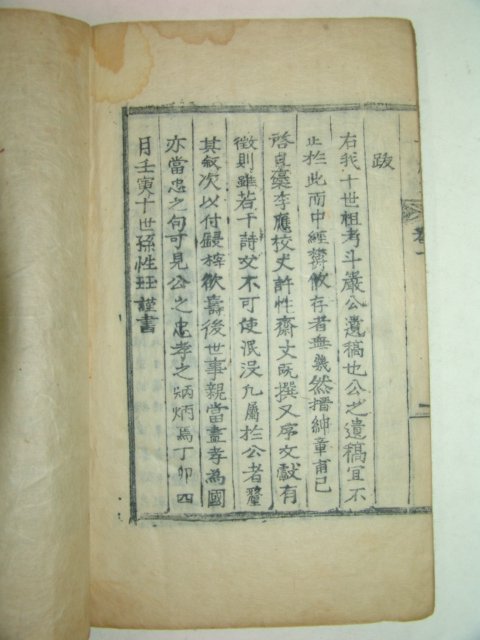 跋
右我十世祖考斗巖公遺稿也公之遺稿宜不
止於此而中經散存者無幾然搢紳章甫已
啓乱藁李應校丈許性齋丈旣撰又序文獻有
徵則雖若干詩文不可使泯沒凡屬於公者釐
其叙次以付剞梓欲壽後世事親當盡孝爲國
亦當忠之句可見公之忠孝之炳炳焉丁卯四
月壬寅十世孫性玨謹書
卷一